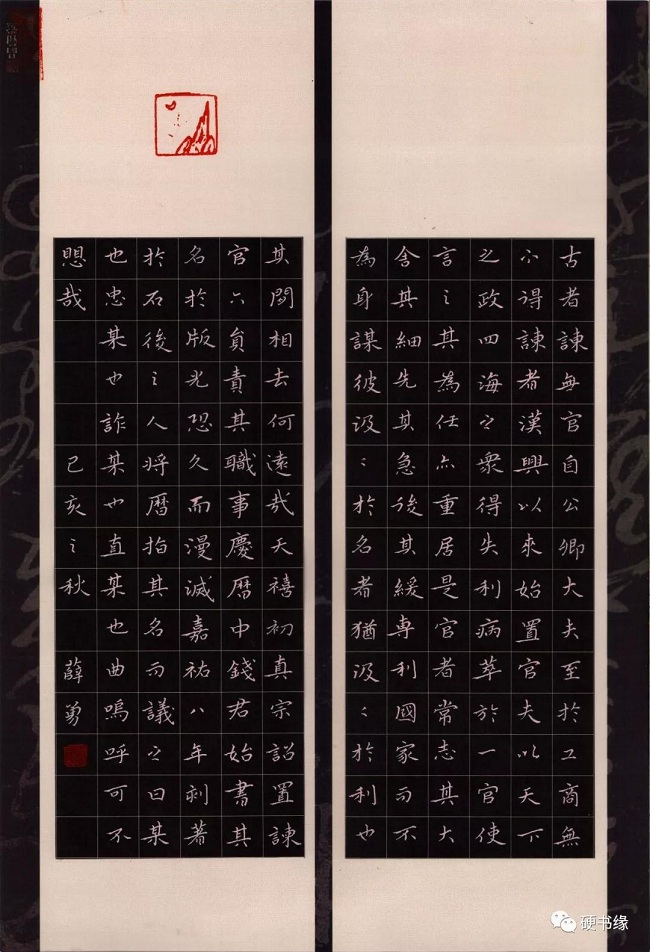 古者諫無官自公卿大夫至於工商無
不得諫者漢興以來始置官夫以天下
之政四海之衆得失利病萃於一官使
言之其為任亦重居是官者常志其大
舍其細先其急後其緩專利國家而不
為身謀彼汲〻於名者猶汲〻於利也
其間相去何遠哉天禧初真宗詔置諫
官六員責其職事慶曆中錢君始書其
名於版光恐久而漫滅嘉祐八年刻著
於石後之人將曆指其名而議之曰某
也忠某也詐某也直某也曲嗚呼可不
愳哉 己亥之秋 薛勇
硬书缘